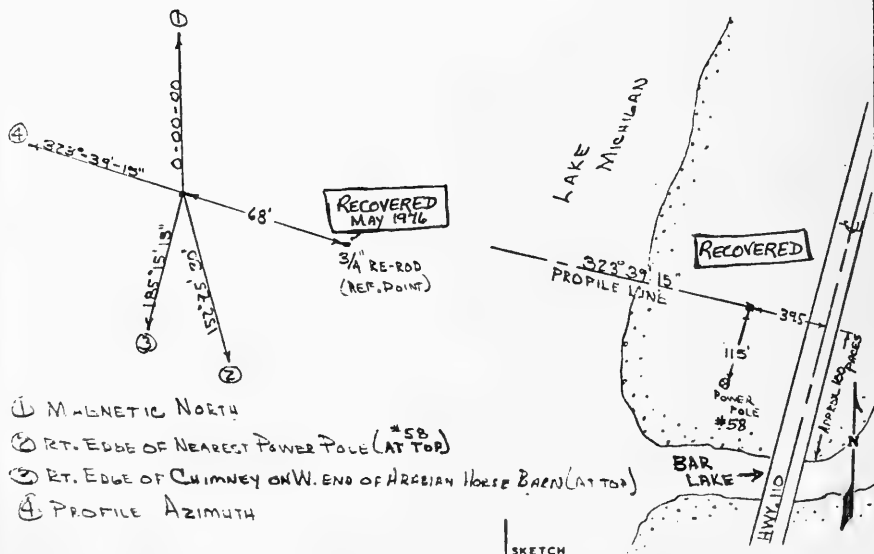 ①
0-00-00
④
323°-39'-15"
68'
RECOVERED
MAY 1976
3/4" RE-ROD
(REF. POINT)
185°15'15"
152°25'20"
③
②
① MAGNETIC NORTH
② RT. EDGE OF NEAREST POWER POLE (#58 AT TOP)
③ RT. EDGE OF CHIMNEY ON W. END OF ARABIAN HORSE BARN (AT TOP)
④ PROFILE AZIMUTH
LAKE
MICHIGAN
RECOVERED
323°39'15"
PROFILE LINE
395
115'
POWER
POLE
#58
APPROX 180 PACES
N
BAR
LAKE
HWY. 110
SKETCH